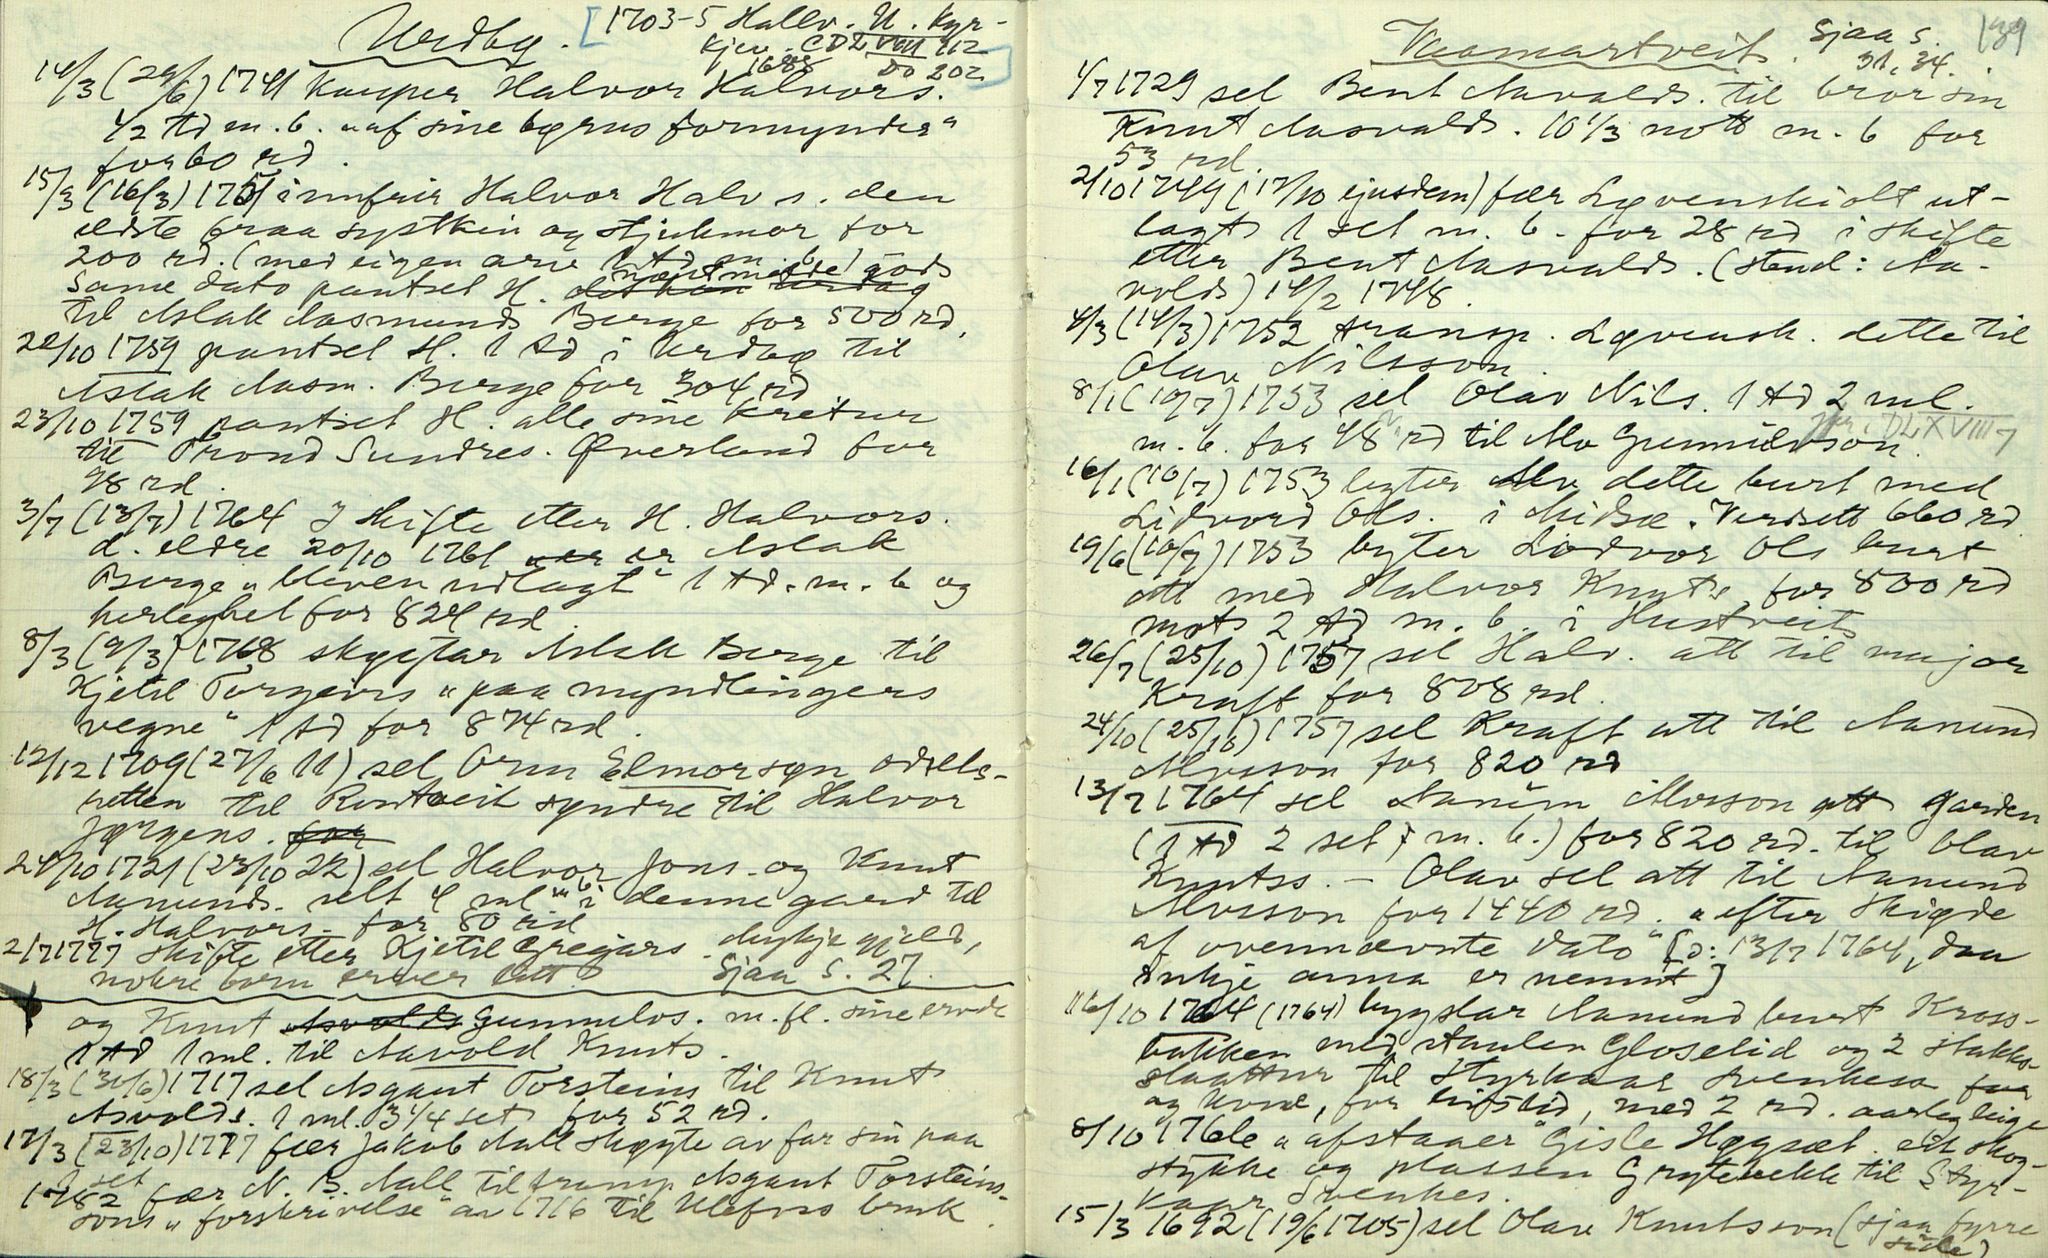 Urdbø. [1703-5 Hallv. U. kyr-
kjev. CDL VIII 112
1688 DO 202]
14/3 (29/6) 1741 kauper Halvor Halvors.
1/2 td m. b. "af sine børns formynder"
for 60 rd.
15/3 (16/3) 1751 innfrir Halvor Halv s. den
eldste braa systkin og stjukmor for
200 rd. (med eigen arv 1 td m. b.)
Same dato pantset H. nemnde gods
til Aslak Aasmunds Berge for 500 rd.
22/10 1759 pantset H. 1 td i Urdbø til
Aslak Aasm. Berge for 304 rd
23/10 1759 pantset H. alle sine kretur
til Trond Sundres. Øverland for
98 rd.
3/7 (13/7) 1764 I skifte etter H. Halvors.
d. eldre 20/10 1761 er Aslak
Berge "bleven udlagt" 1 td. m. b og
herleghet for 824 rd.
8/3 (9/3) 1768 skøytar Aslak Berge til
Kjetil Torgeirs "paa myndlingers
vegne" 1 td for 874 rd.
12/12 1709 (27/6 11) sel Orm Elmorsøn odels-
retten til Rontveit syndre til Halvor
Jørgens. for
24/10 1721 (23/10 22) sel Halvor Jons. og Knut
Aamunds. selt 4 ml m b i denne gard til
H. Halvors. for 80 rd
2/7 1777 skifte etter Kjetil Gregars. mykje gjeld,
nokre born erver litt. Sjaa s. 27.
og Knut Asvolds Gunnulvs. m. fl. sine
1 td 1 ml. til Aavold Knuts.
18/3 (30/6) 1717 sel Asgaut Torsteins til Knut
Asvolds. 1 ml. 3 1/4 set for 52 rd.
17/3 (23/10) 1777 fær Jakob Aall skøyte av far sin paa
2 set
1782 fær N. B. Aall til transp. Asgaut Torsteins-
sons "forskrivelse" av 1716 til Ulefoss bruk.
Vaamartveit. Sjaa s.
31, 34. 139
1/7 1729 sel Bent Aavalds. til bror sin
Knut Aasvalds. 10 1/3 nott m. b for
53 rd.
2/10 1749 (17/10 ejusdem) fær Løvenskiolt ut-
lagt 1 set m. b. for 28 rd i skifte
etter Bent Aasvalds. (stend: Aa-
volds) 14/2 1748.
4/3 (14/3) 1752 transp. Løvensk. dette til
Olav Nilsson.
8/1 (10/7) 1753 sel Olav Nils. 1 td 2 ml.
m. b. for 48 rd til Alv Gunnulvson. DLXVIII 7
16/1 (10/7) 1753 byter Alv dette burt med
Lidvord Ols. i Midbø. Verdsett 660 rd
19/6 (10/7) 1753 byter Lidvor Ols burt
att med Halvor Knuts for 800 rd
mot 2 td m. b. i Hustveit
26/7 (25/10) 1757 sel Halv. att til major
Kraft for 808 rd.
24/10 (25/10) 1757 sel Kraft att til Aamund
Alvsson for 820 rd
13/7 1764 sel Aamun Alvsson att garden
(1 td 2 set i m. b.) for 820 rd. til Olav
Knutss. - Olav sel att til Aamund
Alvsson for 1440 rd. "efter skigde
af ovennævnte dato" [ɔ: 13/7 1764, daa
inkje anna er nemnt]
16/10 1764 (1764) bygslar Aamund burt Kross-
bakken med staulen Gloselid og 2 stakk-
slaattur til Styrkaar Svenkess for
og kone, for livstid, med 2 rd. aarleg leige
8/10 1766 "afstaaer" Gisle Høgsæt eit skog-
stykke og plassen Grytebekk til Styr-
kaar Svenkes.
15/3 1692 (19/6 1705) sel Olav Knutsson (sjaa fyrre
side)